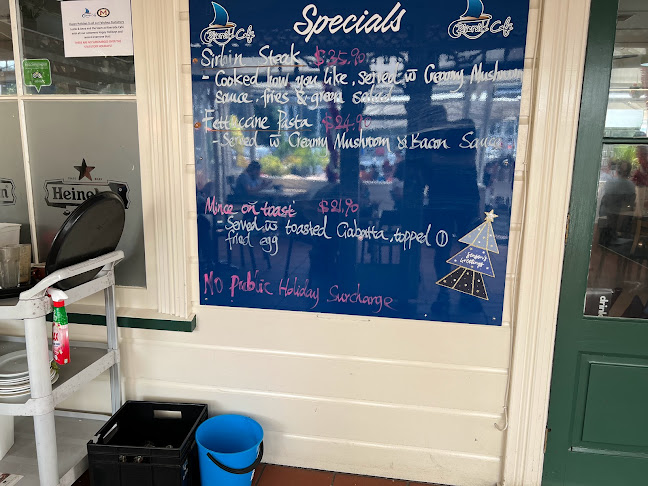 Specials
Sirloin Steak $35.90
- Cooked how you like, served w Creamy Mushroom
sauce, fries & green salad
Fettuccine Pasta $24.90
- Served w Creamy Mushroom & Bacon Sauce
Mince on toast $21.90
Served w toasted Ciabatta, topped ①
fried egg
No Public Holiday Surcharge
Season's
Greetings
Heineken